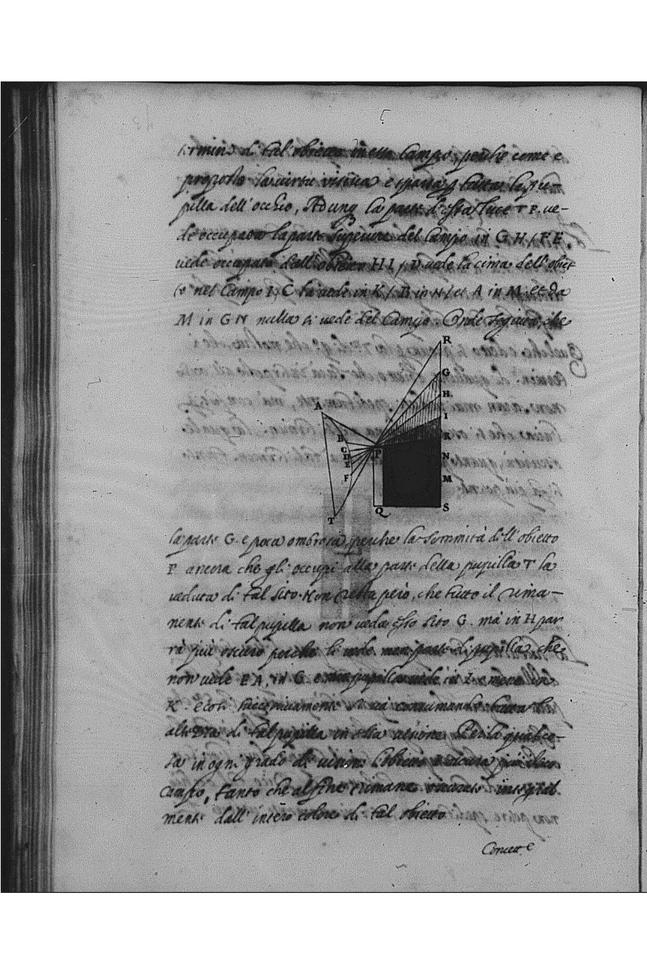 termine di tal obietto in esso Campo, perche come e
proposto la virtu visiva e sparsa per tutta la pu
pilla dell'occhio, Adunq la parte d'essa luce T F. ve-
de occupare la parte superiore del Campo in G. H / F. E.
vede occupata dall'obietto H I / D vede la cima dell'obiet
to nel Campo I / C la vede in K / B in N / et A in M. et da
M in G N nulla si vede del Campo. Onde seguita, che
R
G
H
I
K
N
M
S
A
B
C
D
E
F
P
T
Q
la parte G. e poca ombrosa perche la sommità dell obietto
P ancora che gli occupi alla parte della pupilla T la
veduta di tal sito. Non resta però, che tutto il rima-
nente di tal pupilla non veda esso sito G. mà in H par
rà piu oscuro perche lo vede men parte di pupilla, che
non vede in G. e men pupilla vede in I. e meno in
K e cosi succesivamente
altezza di tal pupilla in essa
ta in ogni grado di campo
Campo, tanto che al fine rimane integral
mente dall'intero colore di tal obietto
Concett